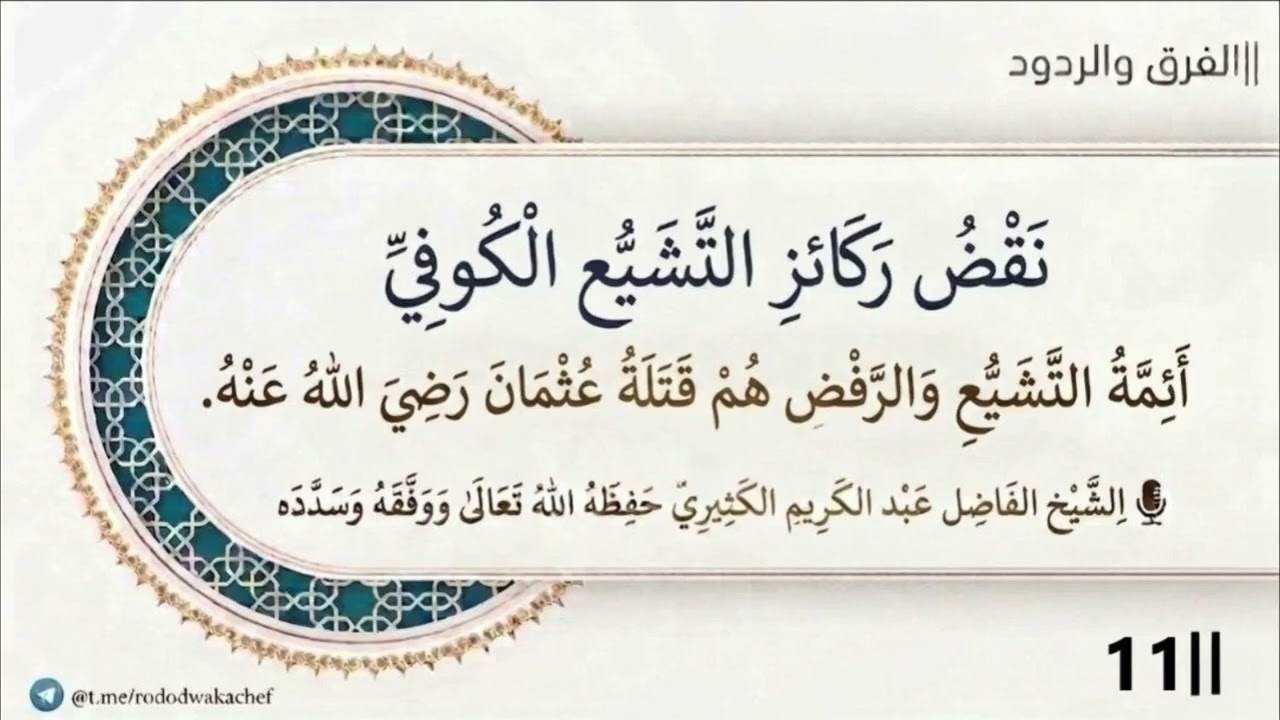 ||الفرق والردود
نَقْضُ رَكَائزِ التَّشَيُّع الْكُوفِيِّ
أَئِمَّةُ التَّشَيُّعِ وَالرَّفْضِ هُمْ قَتَلَةُ عُثْمَانَ رَضِيَ اللهُ عَنْهُ.
اِلشَّيْخ الفَاضِل عَبْد الكَرِيمِ الكَثِيرِيّ حَفِظَهُ اللهُ تَعَالَىٰ وَوَفَّقَهُ وَسَدَّدَه
11||
@t.me/rododwakachef